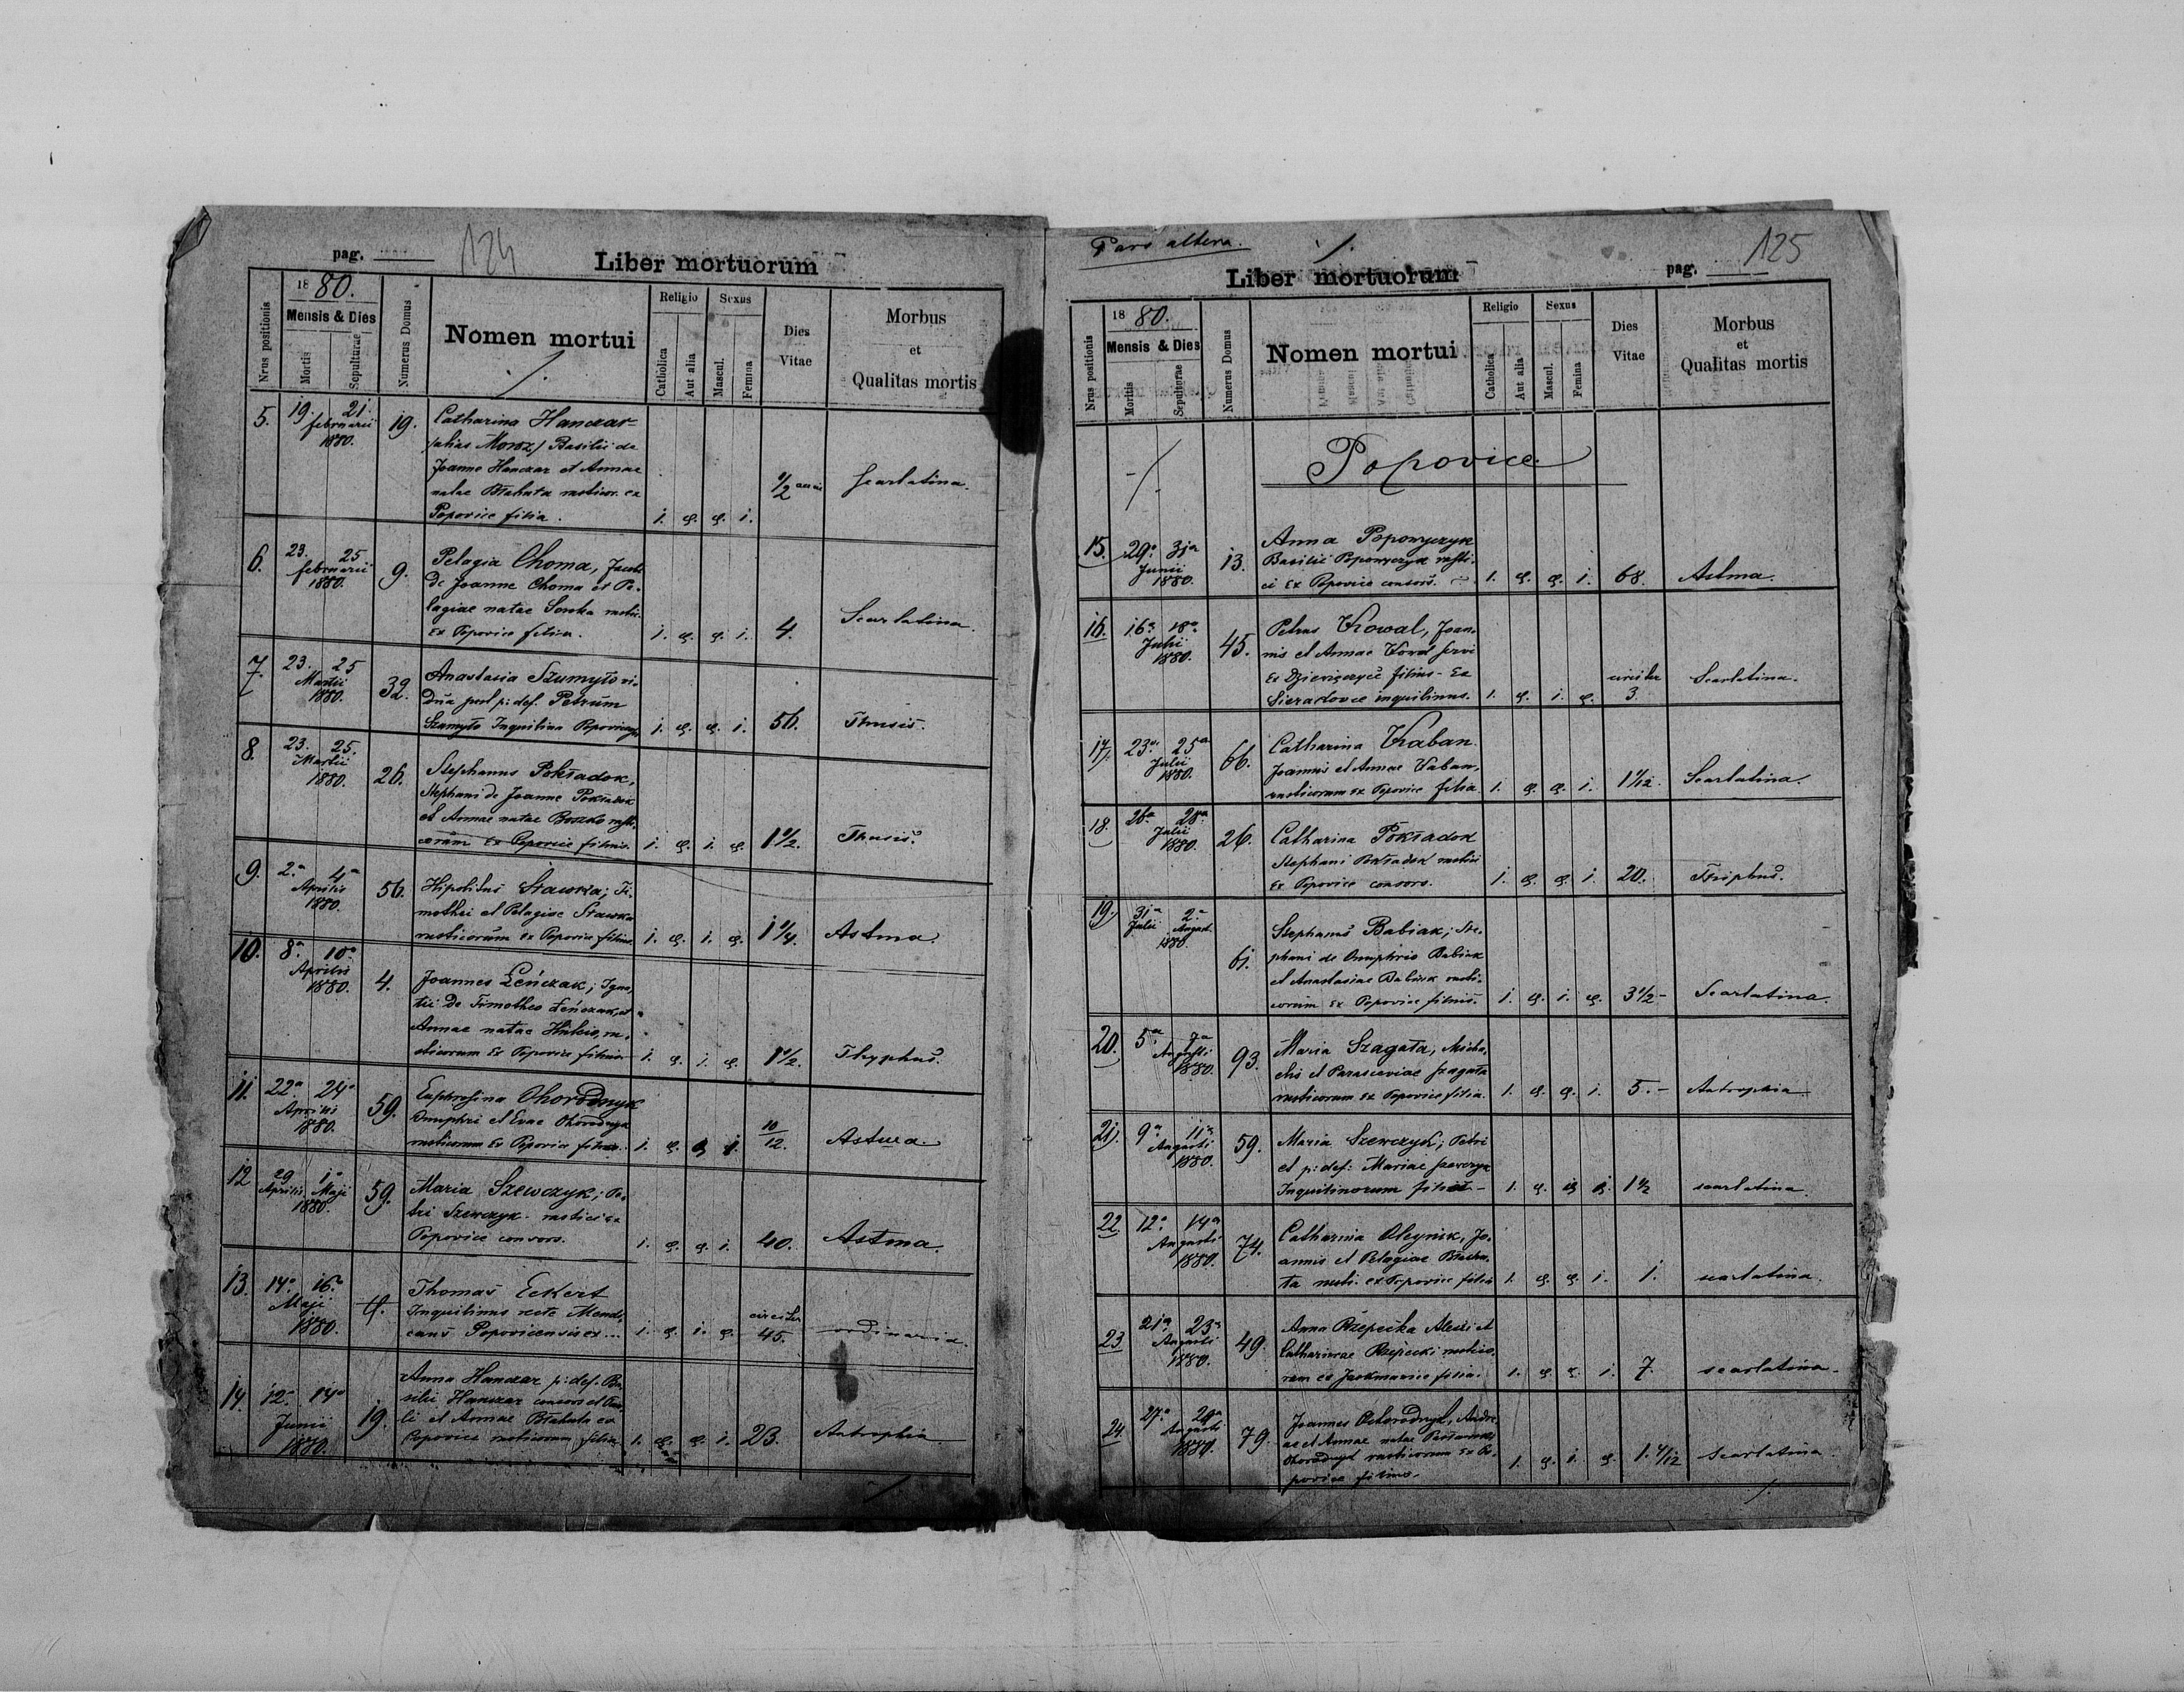 pag. 124
Liber mortuorum
Nrus positionis
1880.
Mensis & Dies
Mortis
Sepulturae
Numerus Domus
Nomen mortui
Religio
Catholica
Aut alia
Sexus
Mascul.
Femina
Dies
Vitae
Morbus
et
Qualitas mortis
5. 19. 21. februarii 1880. 19.
Catharina Hanczar
/alias Moroz/ Basilii de
Joanne Hanczar et Annae
natae Błahuta rusticor. ex
Popovice filia.
1/2 anni Scarlatina.
6. 23. 25 februarii 1880. 9.
Pelagia Choma, Jacobi
de Joanne Choma et Pe-
lagiae natae
Ex Popovice filia.
4. Scarlatina.
7. 23. 25 Martii 1880. 32.
Anastasia Szumyło vi-
dua post p: def. Petrum
Szumyło Inquilina
56. Thusis.
8. 23. 25. Martii 1880. 26.
Stephanus Pokładok,
Stephani de Joanne Pokładok
et Annae natae Boszko rusti-
corum Ex Popovice filius.
1 1/2. Thusis.
9. 2a 4a Aprilis 1880. 56.
Hipolitus Sławska; Ti-
mothei et Pelagiae Sławska
rusticorum ex Popovice filius.
1 1/4. Astma.
10. 8a 10a Aprilis 1880. 4.
Joannes Leńczak; Igna-
tii de Timotheo Leńczak, et
Annae natae
sticorum Ex Popovice filius
1 1/2. Thyphus.
11. 22a 24a Aprilis 1880. 59.
Euphrosina Ohorodnyk
Onuphri et Evae Ohorodnyk
rusticorum Ex Popovice filia.
10/12. Astma.
12 29 Aprilis 1a Maji 1880. 59.
Maria Szewczyk; Pe-
tri Szewczyk rustici ex
Popovice consors.
40. Astma.
13. 14a 16a Maji 1880.
Thomas Eckert
Inquilinus recte Mendi-
cans Popovicensis ex...
circiter 45. ordinaria.
14. 12a 14a Junii 1880. 19.
Anna Hanczar p: def. Ba-
silii Hanczar consors et Pau-
li et Annae Błahuta ex
Popovice rusticorum filia
23. Autrophia
Pars altera.
pag. 125
Liber mortuorum
Nrus positionis
1880.
Mensis & Dies
Mortis
Sepulturae
Numerus Domus
Nomen mortui
Religio
Catholica
Aut alia
Sexus
Mascul.
Femina
Dies
Vitae
Morbus
et
Qualitas mortis
Popovice
15. 29a 31a Junii 1880. 13.
Anna Popowyczyk
Basilii Popowyczyk rusti-
ci Ex Popovice consors.
68. Astma.
16. 16a 18a Julii 1880. 45.
Petrus Kowal, Joan-
nis et Annae Kowal servi
Ex filius - Ex
Sieradovce inquilinus.
circiter 3. Scarlatina.
17. 23a 25a Julii 1880. 66.
Catharina Kaban
Joannis et Annae Kaban,
rusticorum ex Popovice filia
1 1/12. Scarlatina.
18. 26a 28a Julii 1880. 26.
Catharina Pokładok
Stephani Pokładok rustici
Ex Popovice consors.
20. Thiphus.
19. 31a Julii 2a August. 1880. 61.
Stephanus Babiak; Ste-
phani de Onuphrio Babiak
et Anastasiae Babiak rusti-
corum Ex Popovice filius.
3 1/2 - Scarlatina.
20. 5a 7a Augusti 1880. 93.
Maria Szagała, Micha-
elis et Parasceviae Szagała
rusticorum ex Popovice filia.
5. - Autrophia
21. 9a 11a Augusti 1880. 59.
Maria Szewczyk; Petri
et p: def: Mariae Szewczyk
Inquilinorum filia -
1 1/2 scarlatina.
22. 12a 14a Augusti 1880. 74.
Catharina Oleynik, Jo-
annis et Pelagiae Błahu-
ta rusti. ex Popovice filia
1. scarlatina.
23. 21a 23a Augusti 1880. 49.
Anna Rzepecka Alexii et
Catharinae Rzepecki rustico-
rum ex Jackmanice filia.
7. scarlatina.
24. 27a 29a Augusti 1880. 79.
Joannes Ochorodnyk, Andre-
ae et Annae natae
Ohorodnyk rusticorum Ex Po-
povice filius.
1. 4/12 Scarlatina.